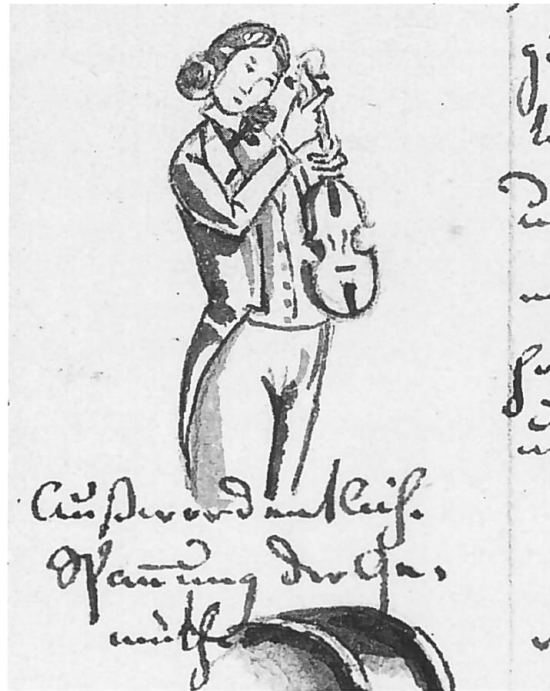 Außerordentlich.
Span̄ung der Ge-
müth